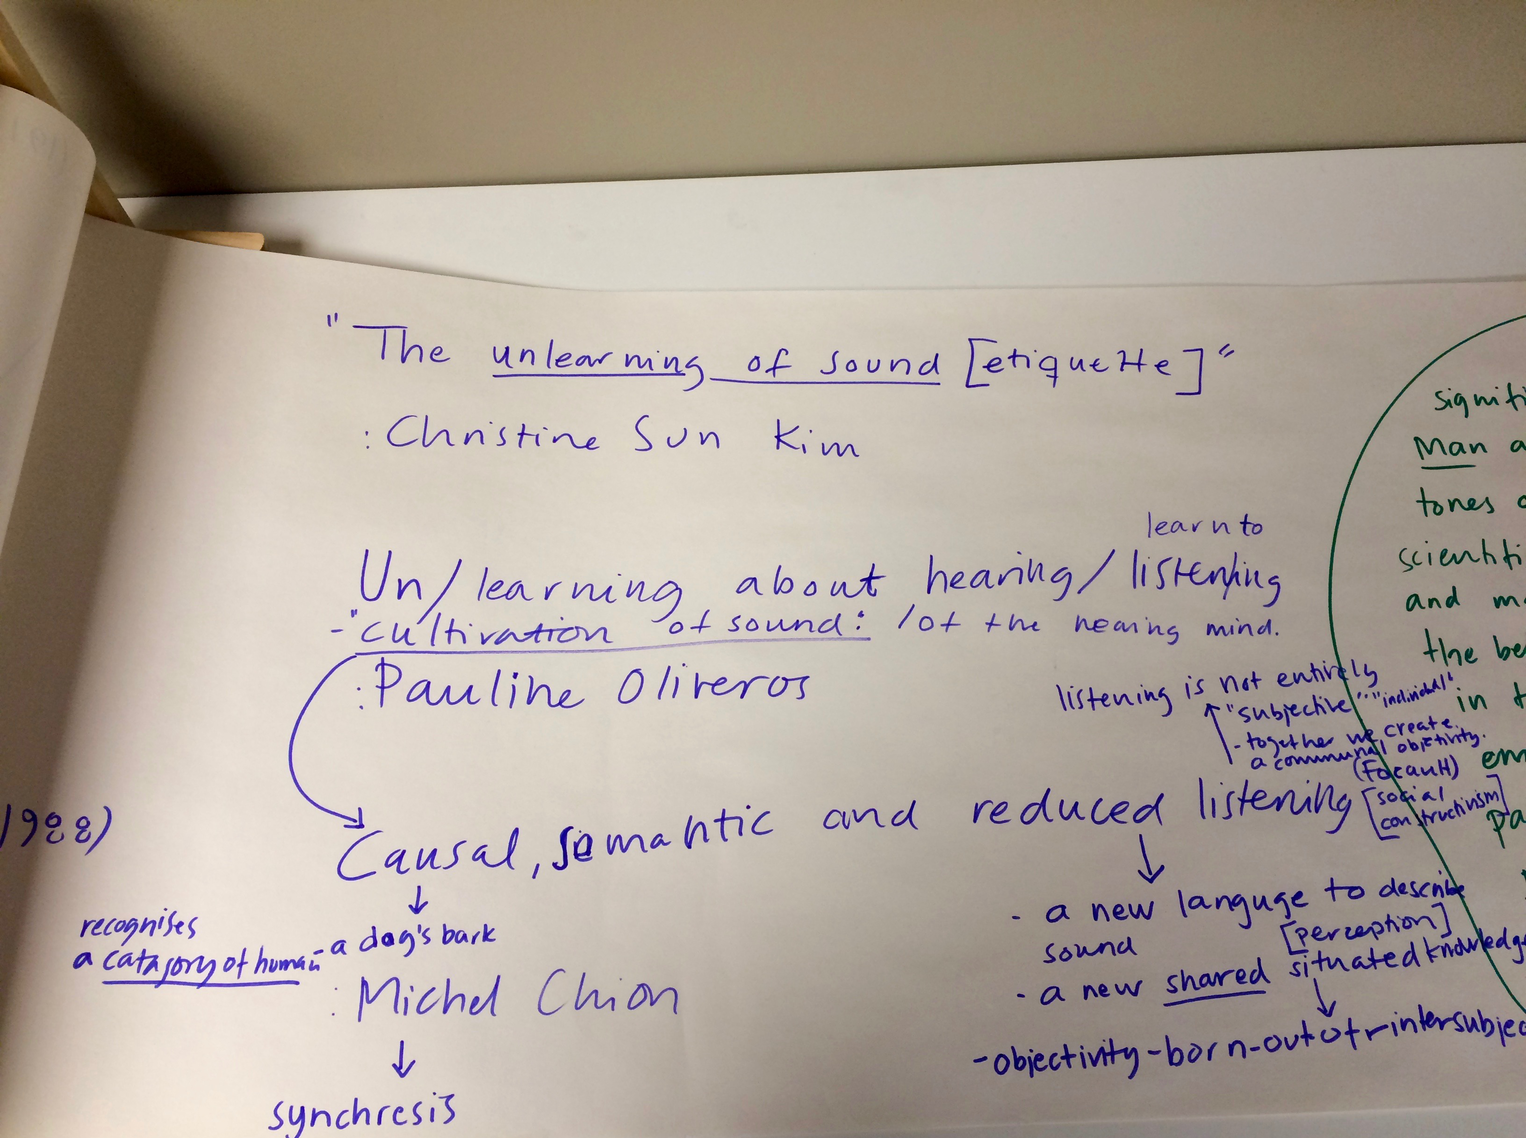 "The unlearning of sound [etiquette]"
: Christine Sun Kim
learn to
Un/learning about hearing/listening
-"cultivation of sound: /of the hearing mind.
: Pauline Oliveros
listening is not entirely
"subjective" "individual"
- together we create
a communal objectivity.
(Focault)
[social
constructivism]
1988)
Causal, semantic and reduced listening
recognises
a catagory of human - a dog's bark
: Michel Chion
synchresis
- a new languge to describe
sound [perception]
- a new shared situated knowledg
-objectivity-born-out-of-intersubjec
Man a
tones
scientifi
and m
the be
in t
em
pa